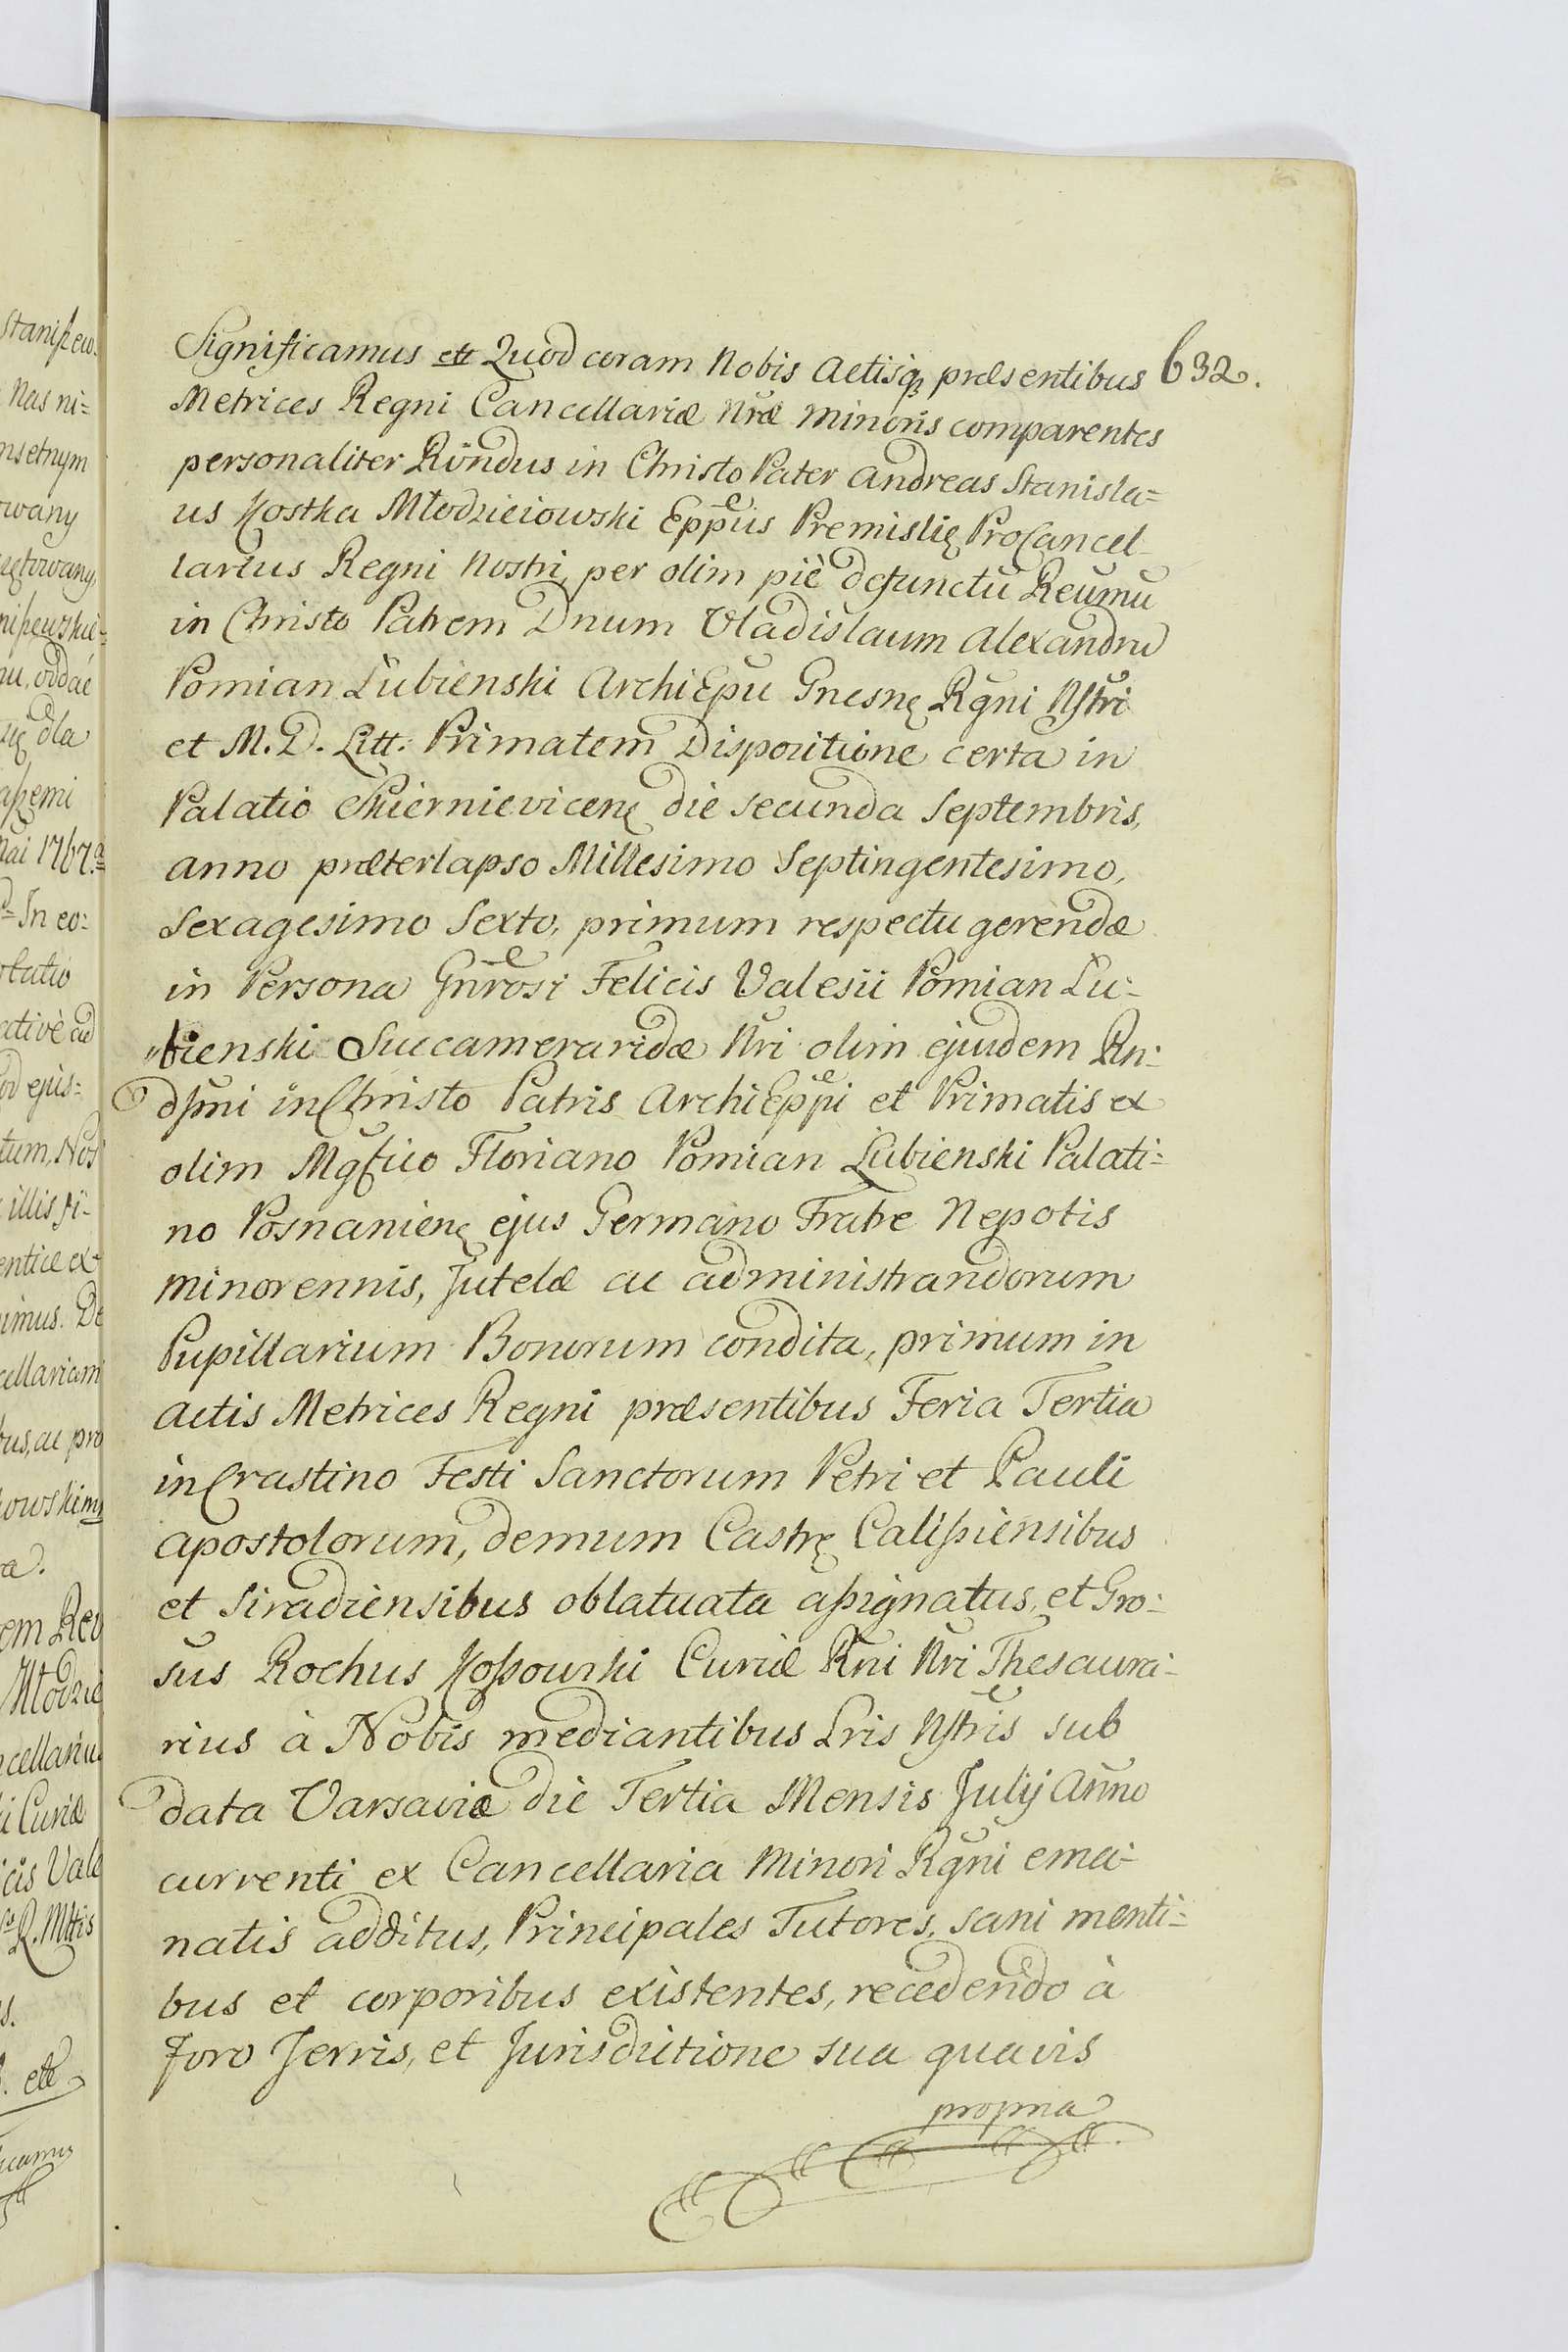 632.
Significamus ett Quod coram Nobis Actisq₃ præsentibus
Metrices Regni Cancellariæ Nræ Minoris comparentes
personaliter Rñdus in Christo Pater Andreas Stanisla=
us Kostka Młodzieiowski Eppus Premislię ProCancel-
larius Regni Nostri, per olim piè defunctū Reumū
in Christo Patrem Dnum Vladislaum Alexandrū
Pomian Łubienski ArchiEpū Gnesnę Rgni Nstri
et M. D. Litt: Primatem Dispozitione certa in
Palatio Skiernievicenę die secunda Septembris,
Anno præterlapso Millesimo Septingentesimo,
Sexagesimo Sexto, primum respectu gerendæ
in Persona Gnrosi Felicis Valesii Pomian Łu=
"bienski Succameraridæ Nri olim ejusdem Rn:
dſmi in Christo Patris ArchiEppi et Primatis ex
olim Mgfico Floriano Pomian Łubienski Palati=
no Posnanienę ejus Germano Fratre Nepotis
minorennis, Tutelæ ac administrandorum
Pupillarium Bonorum condita, primum in
Actis Metrices Regni præsentibus Feria Tertia
in Crastino Festi Sanctorum Petri et Pauli
Apostolorum, demum Castrę Calißiensibus
et Siradiensibus oblatuata aßignatus, et Gro=
sus Rochus Koßowski Curiæ Rni Nri Thesaura-
rius à Nobis mediantibus Lris Nstris sub
data Varsaviæ die Tertia Mensis Julij Anno
currenti ex Cancellaria Minori Rgni ema-
natis additus, Principales Tutores, sani menti=
bus et corporibus existentes, recedendo à
Foro Terris, et Jurisdictione sua quavis
propria